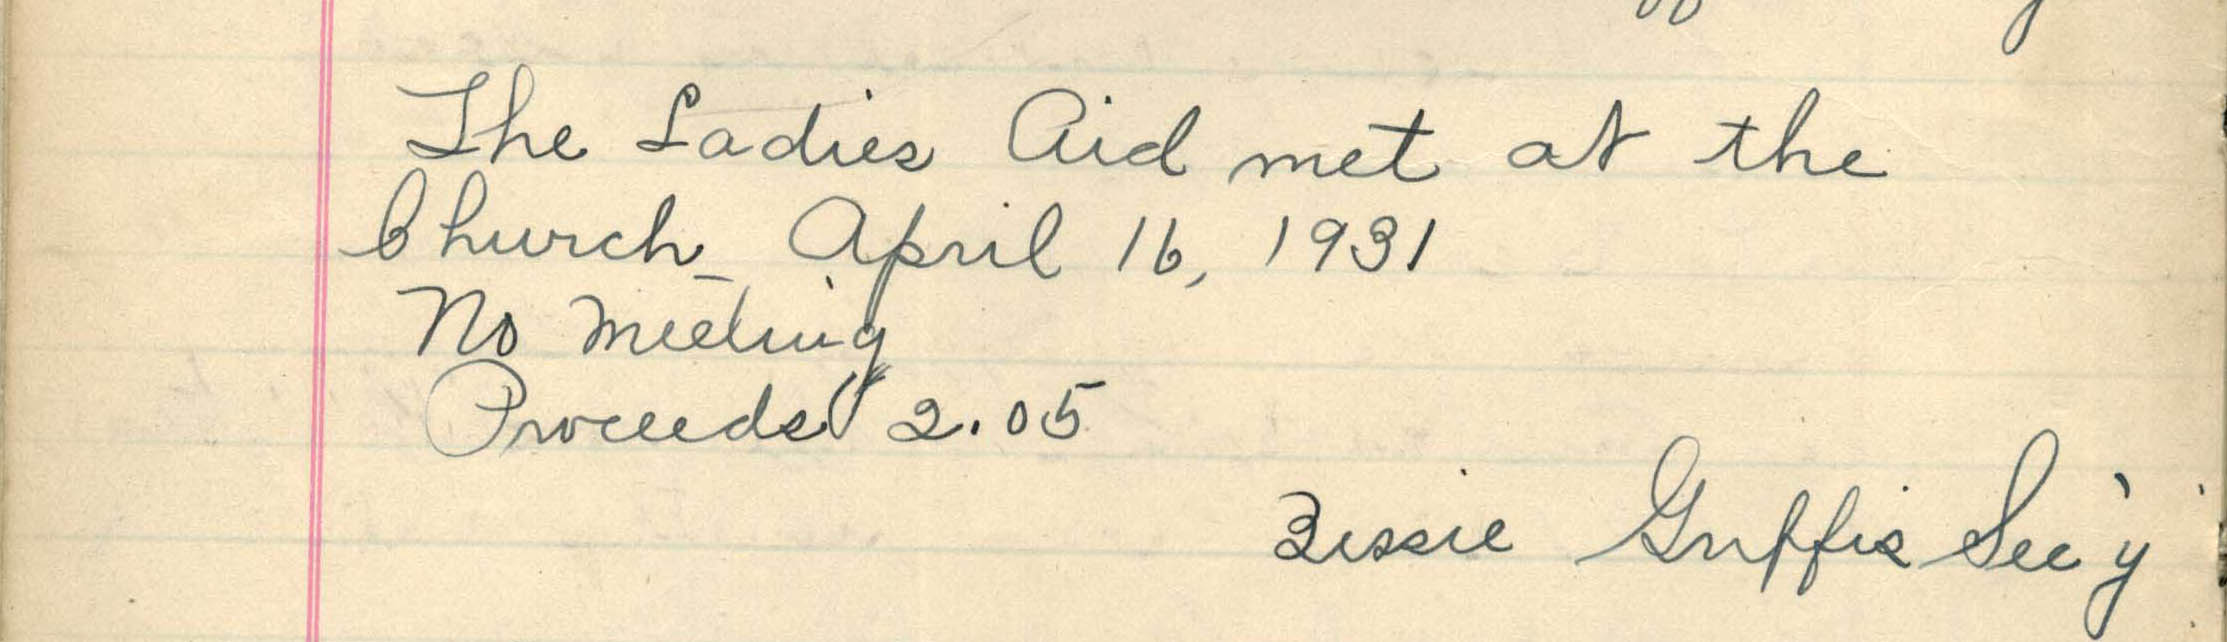 The Ladies Aid met at the
Church April 16, 1931
No Meeting
Proceeds 2.05
Bessie Griffis Sec'y